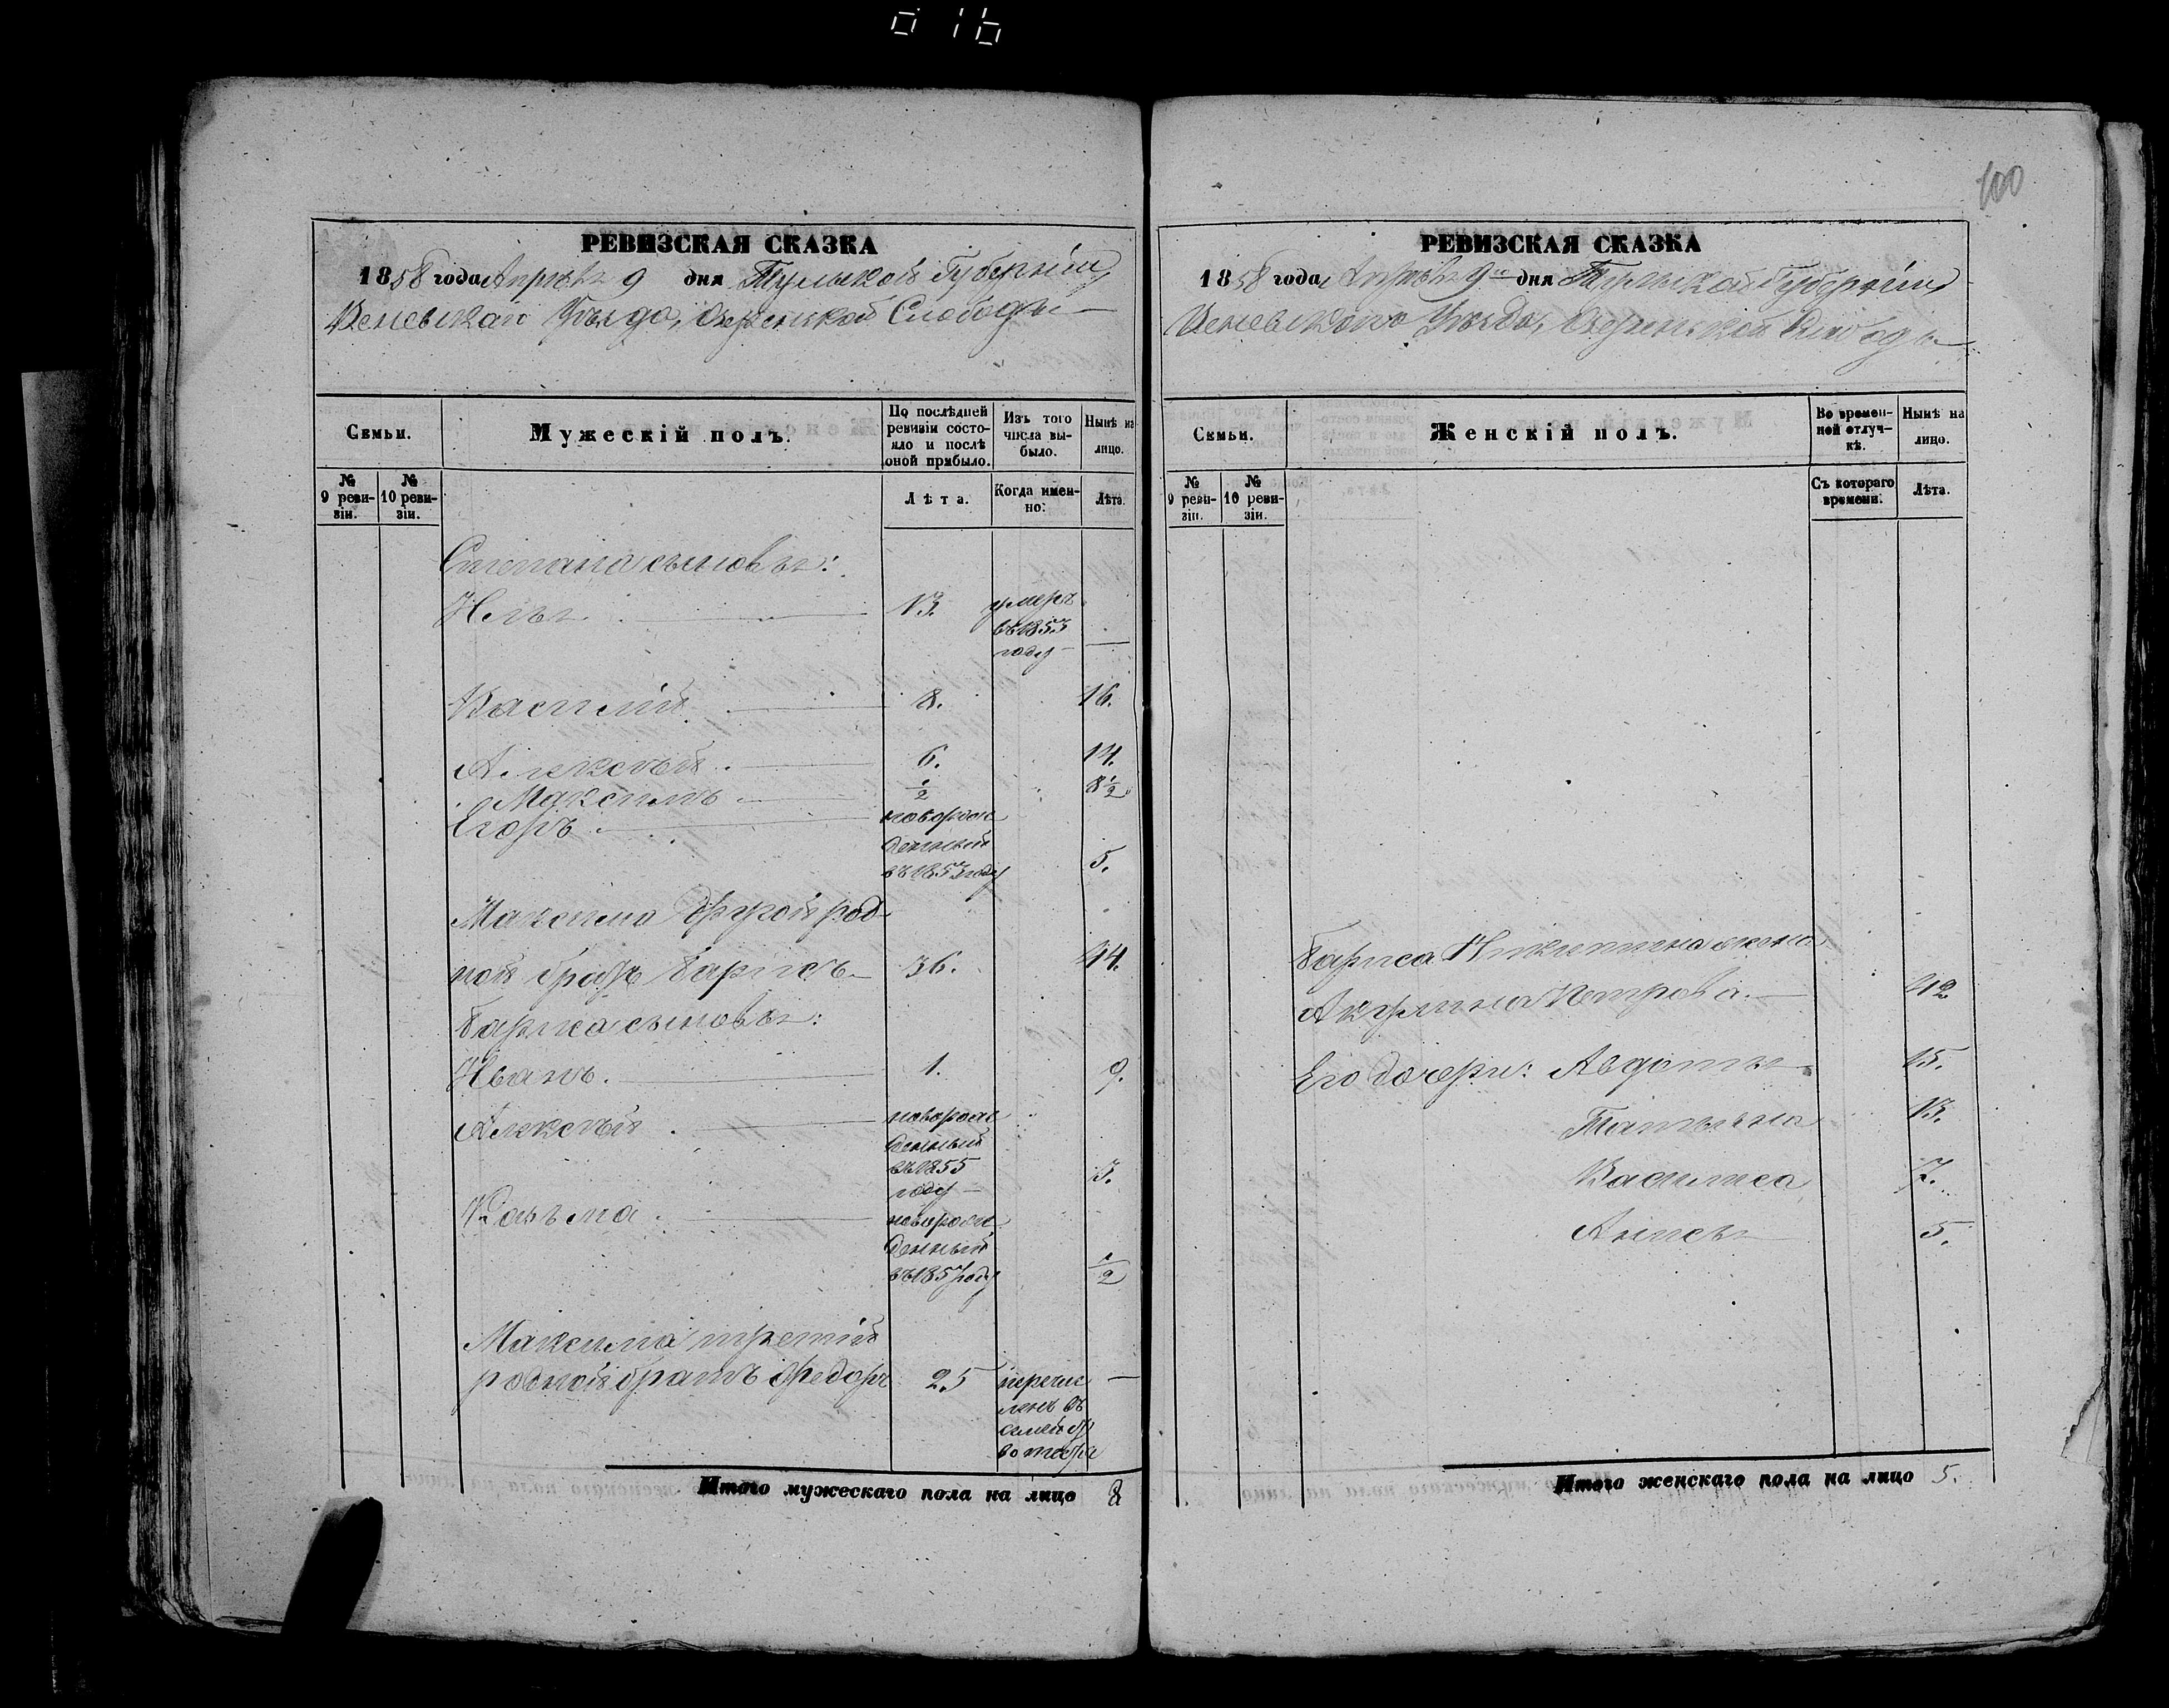 016
100
РЕВИЗСКАЯ СКАЗКА
1858 года Апрѣля 9 дня Тульской Губерніи,
Веневскаго Уѣзда, Озеренской Слободы
Семьи.
Мужескій полъ.
По послѣдней ревизіи состояло и послѣ оной прибыло.
Изъ того числа выбыло.
Нынѣ на лицо.
№ 9 ревизіи.
№ 10 ревизіи.
Лѣта.
Когда именно:
Лѣта.
Степана сыновья:
Илья 13. умеръ
въ 1853
году —
Василій 8. 16.
Алексѣй 6. 14.
Максимъ ½ 8½
Егоръ новорож
денный
въ 1853 году 5.
Максима другой род-
ной братъ Барисъ 36. 44.
Бариса сыновья:
Иванъ. 1. 9.
Алексѣй новорож
денный
въ 1855 3.
году
Козьма новорож
денный
въ 1857 году ½
Максима третій
родной братъ Федоръ 25 перечис —
ленъ въ
семейст
во тестя
Итого мужескаго пола на лицо 8
РЕВИЗСКАЯ СКАЗКА
1858 года Апрѣля 9го дня Тульской Губерніи,
Веневскаго Уѣзда, Озеренской Слободы
Семьи.
Женскій полъ.
Во временной отлучкѣ.
Нынѣ на лицо.
№ 9 ревизіи.
№ 10 ревизіи.
Съ котораго времени.
Лѣта.
Бариса Никитина жена
Акулина Петрова. 42
Его дочери: Авдотья 15.
Татьяна 13.
Василиса 7.
Анисья 5.
Итого женскаго пола на лицо 5.